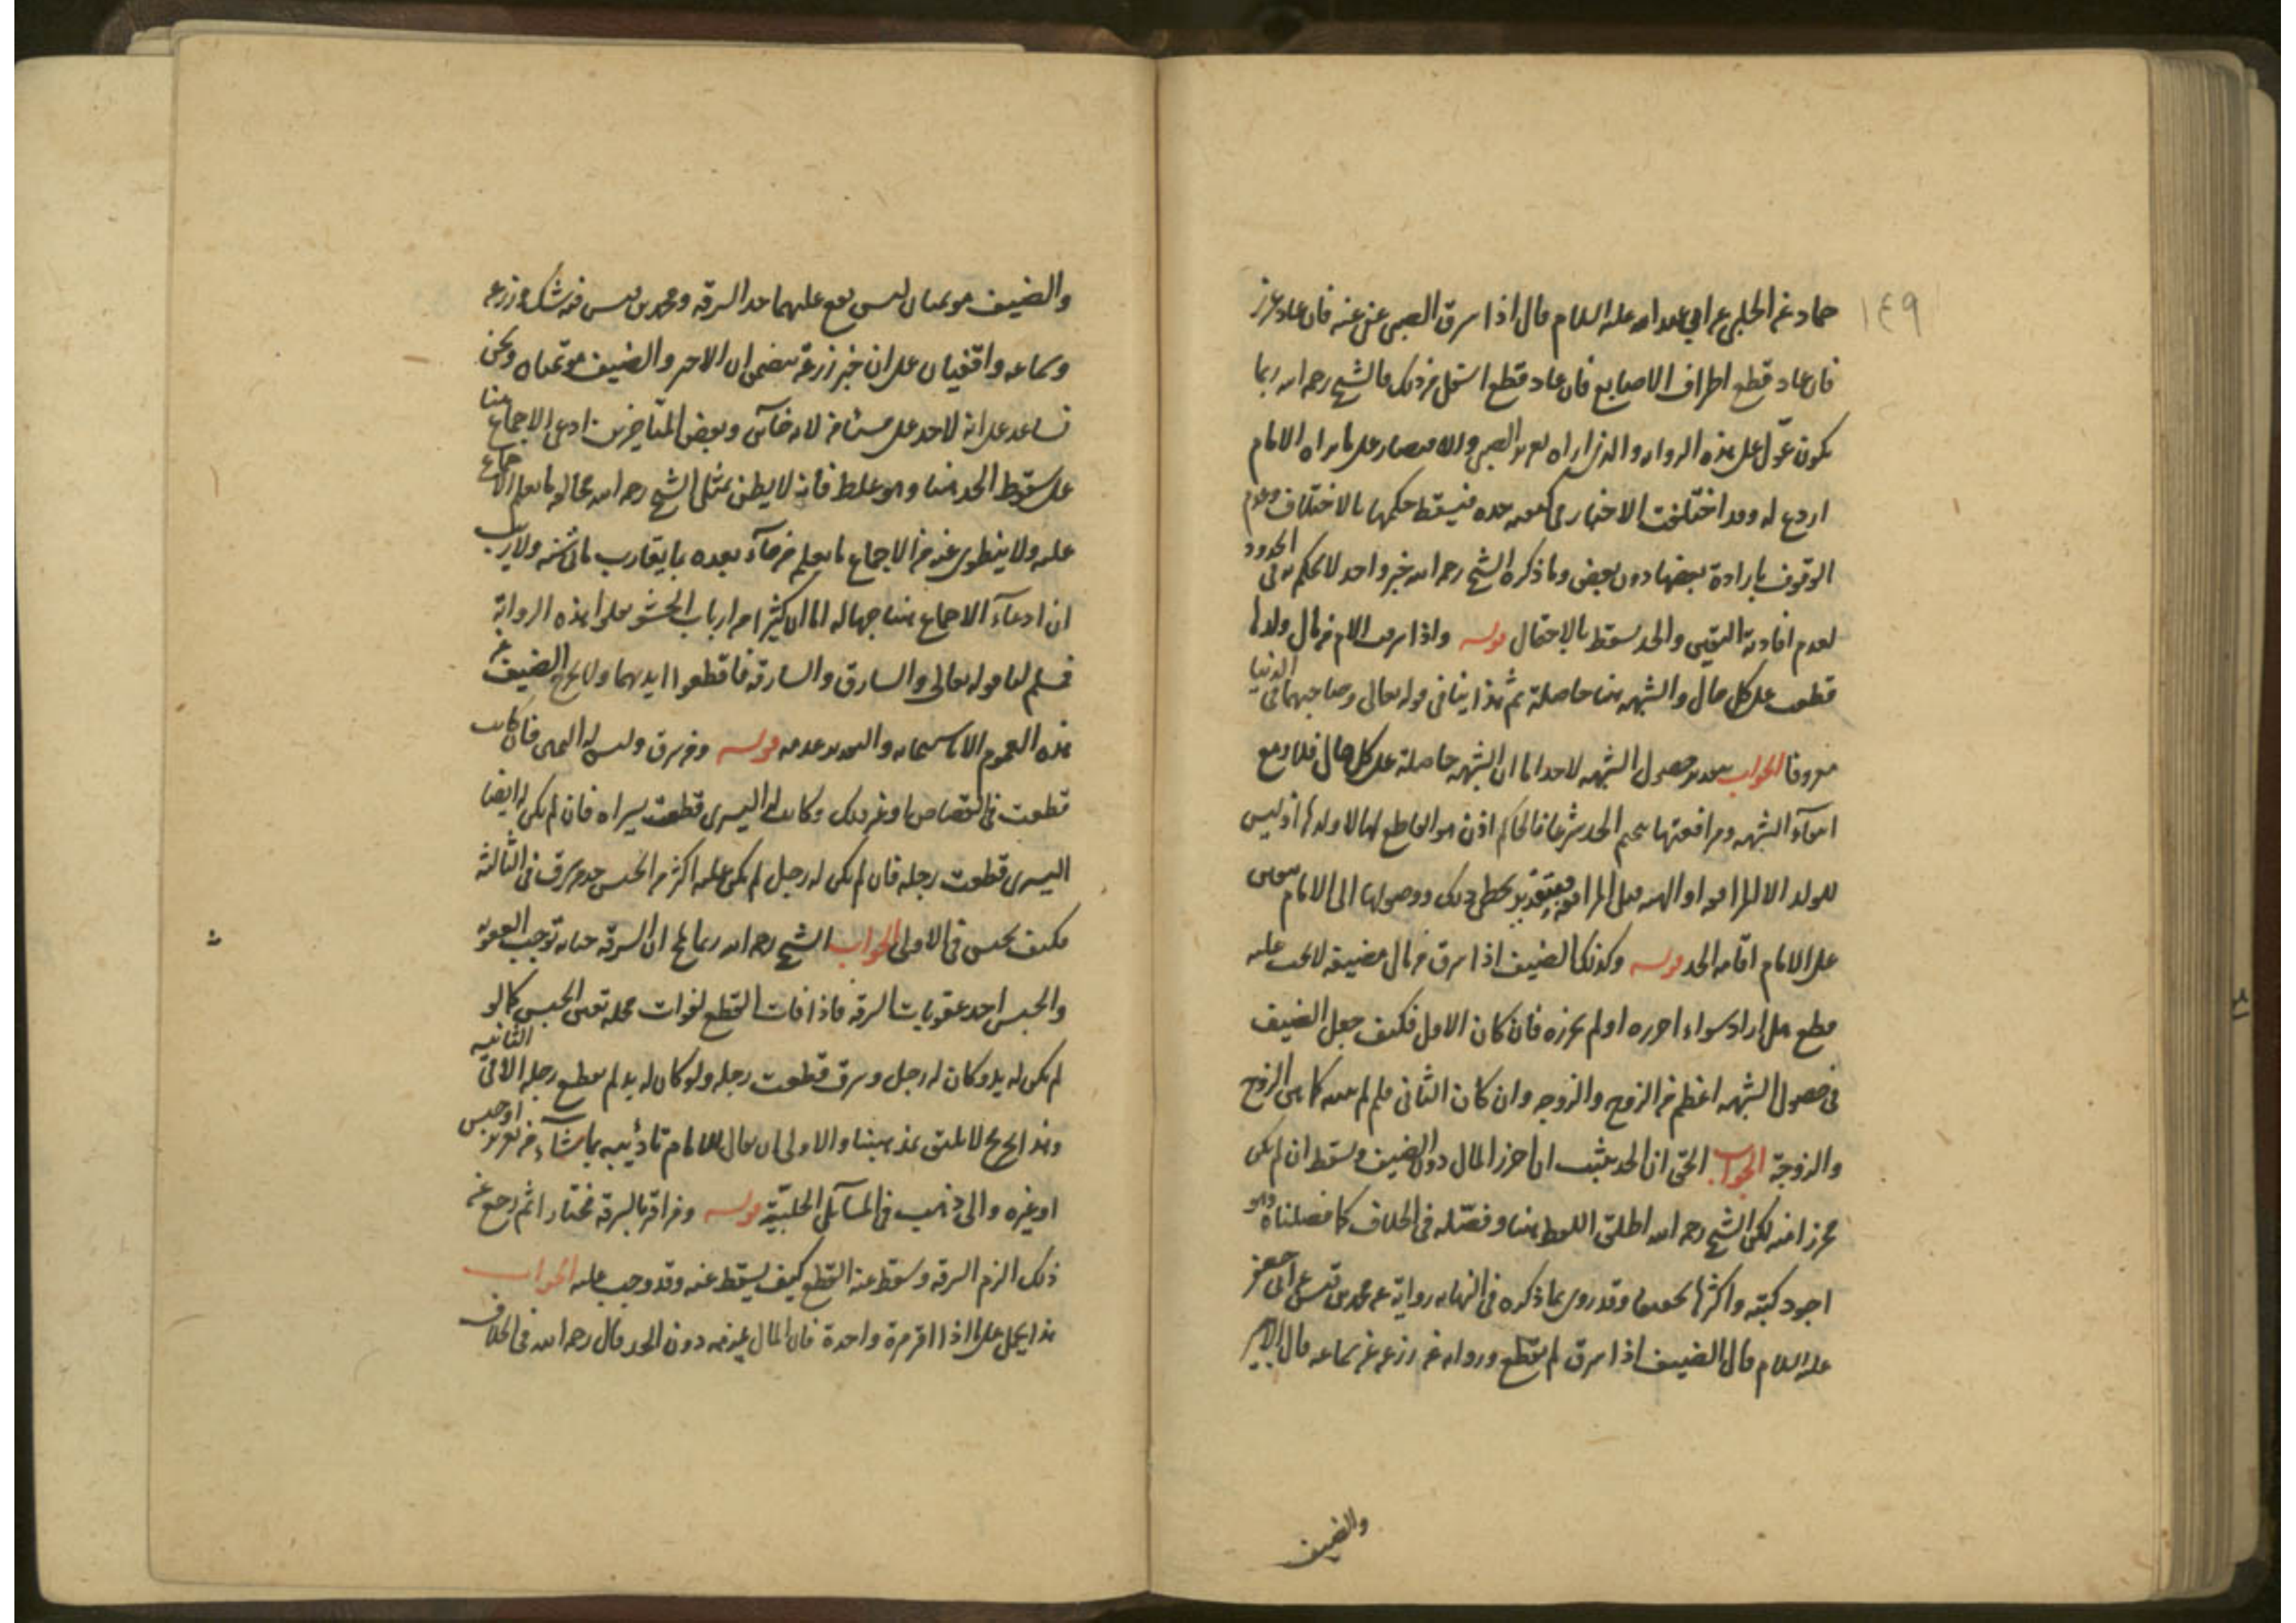 ١٤٩
حماد عن الحلبي عن ابي عبد الله عليه السلام قال اذا سرق الصبي عفى عنه فان عاد عزر
فان عاد قطع اطراف الاصابع فان عاد قطع اسفل من ذلك فالشيخ رحمه الله ربما
يكون عوّل على هذه الرواية والذي اراه تعزير الصبي والاقتصار على ما يراه الامام
اردع له وقد اختلفت الاخبار في كيفية حده فيسقط حكمها بالاختلاف وعدم
الوقوف بارادة بعضها دون بعض وما ذكره الشيخ رحمه الله خبر واحد لا يحكم به في الحدود
لعدم افادته اليقين والحد يسقط بالاحتمال قوله واذا سرقت الام من مال ولدها
قطعت على كل حال والشبهة هنا حاصلة ثم هذا ينافي قوله تعالى وصاحبهما في الدنيا
معروفا الجواب بتقدير حصول الشبهة لا حد اما ان الشبهة حاصلة على كل حال فلا ومع
انتفاء الشبهة ومرافعتها يتحتم الحد شرعا فالحاكم اذن هو القاطع لها لا ولدها اذ ليس
للولد الا المرافعة او الهبة قبل المرافعة فبتقدير تخطي ذلك ووصولها الى الامام
على الامام اقامة الحد قوله وكذلك الضيف اذا سرق من مال مضيفه لا يجب عليه
قطع هل اراد سواء احرزه او لم يحرزه فان كان الاول فكيف جعل الضيف
في حصول الشبهة اعظم من الزوج والزوجة وان كان الثاني فلم لم يقيده كما في الزوج
والزوجة الجواب الحق ان الحد يثبت ان احرز المال دون الضيف ويسقط ان لم يكن
محرزا منه لكن الشيخ رحمه الله اطلق اللفظ هنا وفصّله في الخلاف كما فصلناه وهو
اجود كتبه واكثرها تحقيقا وقد روى ما ذكره في النهاية رواية عن محمد بن قيس عن ابي جعفر
عليه السلام قال الضيف اذا سرق لم يقطع ورواية عن زرعة عن سماعة قال الاجير
والضيف
والضيف مؤتمنان ليس يقع عليهما حد السرقة ومحمد بن قيس فيه شك وزرعة
وسماعة واقفيان على ان خبر زرعة يتضمن ان الاجير والضيف مؤتمنان ونحن
نساعد على انه لا حد على مستأمن لانه خائن وبعض المتأخرين ادعى الاجماع هنا
على سقوط الحد هنا وهو غلط فانه لا يظن بمثل الشيخ رحمه الله مخالفة ما يعلم الاجماع
عليه ولا ينطوي عنه من الاجماع ما يعلم من جاء بعده بما يقارب مائتي سنة ولا ريب
ان ادعاء الاجماع هنا جهالة اما ان كثيرا من ارباب الحشو نقلوا هذه الرواية
فسلم لنا قوله تعالى والسارق والسارقة فاقطعوا ايديهما ولا يخرج الضيف عن
هذه العموم الا باستيمانه والتقدير عدمه قوله ومن سرق وليس له اليمنى فان كانت
قطعت في القصاص او غير ذلك وكانت له اليسرى قطعت يسراه فان لم يكن له ايضا
اليسرى قطعت رجله فان لم يكن له رجل لم يكن عليه اكثر من الحبس حد من سرق في الثالثة
فكيف يحبس في الاولى الجواب الشيخ رحمه الله ربما لمح ان السرقة جناية توجب العقوبة
والحبس احد عقوبات السرقة فاذا فات القطع لفوات محله تعين الحبس كما لو
لم يكن له يد وكان له رجل وسرق قطعت رجله ولو كان له يد لم يقطع رجله الا في الثانية
وهذا تخريج لا يليق بمذهبنا والاولى ان يقال للامام تأديبه بما شاء من تعزير او حبس
او غيره والى ذهب في المسائل الحلبيّة قوله ومن اقر بالسرقة مختارا ثم رجع عن
ذلك الزم السرقة وسقط عنه القطع كيف يسقط عنه وقد وجب عليه الجواب
هذا يحمل على ما اذا اقر مرة واحدة فان المال يلزمه دون الحد قال رحمه الله في الخلاف